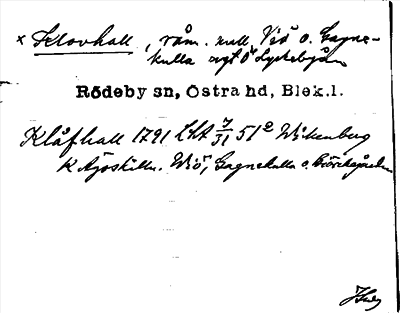 x Klovhall, råm. mell. Viö o. Gagne-
kulla sgt Ö Lyckebyån
Rödeby sn, Östra hd, Blek.l.
Klåfhall 1791 LSA 7/31 51² Wikenberg
K Ägoskilln. Wiö, Gagnekulla o.